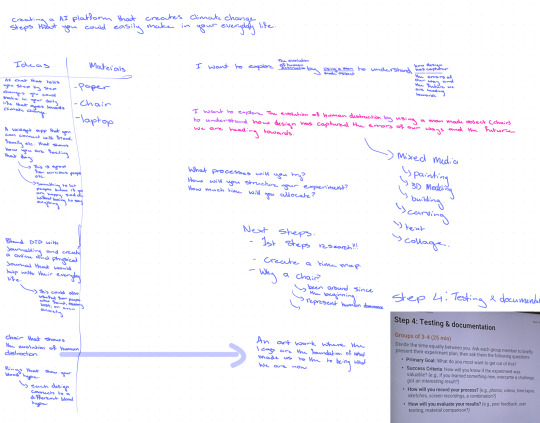 creating a AI platform that creates climate change
steps that you could easily make in your everyday life.
Ideas
Materials
AI chat that tells
you step by step
changes you could
make in your daily
life that goes towards
climate change
- Paper
- Chair
- laptop
A widget app that you
can connect with friends
family etc that shows
how you are feeling
that day
this is great
for anxious people
etc.
Something to let
people know if you
are happy, sad etc
without having to say
anything
Blend DID with
journalling and create
a online and physical
journal that would
help with their everyday
life.
this could also
chair that shows
the evolution of human
distruction
Rings that show your
blood type
each design
connects to
a different blood
type
I want to explore the evolution of human distruction by using a man made object to understand how design has captured the errors of our ways and the future we are heading towards
I want to explore the evolution of human distruction by using a man made object (chair)
to understand how design has captured the errors of our ways and the future
we are heading towards.
Mixed media
painting
3D Modeling
building
carving
text
collage.
What processes will you try?
How will you structure your experiment?
How much time will you allocate?
Next steps:
- 1st steps research!!
- Create a time map
- Why a chair?
been around since
the beginning
represent human
An art work where the
legs are the foundation of what
made us to be who
we are now
Step 4: Testing & documentat
Step 4: Testing & documentation
Groups of 3-4 (25 min)
Divide the time equally between you. Ask each group member to briefly
present their experiment plan, then ask them the following questions
• Primary Goal: What do you most want to get out of this?
• Success Criteria: How will you know if the experiment was
valuable? (e.g., if you learned something new, overcame a challenge,
got an interesting result?)
• How will you record your process? (e.g., photos, videos, time-lapse,
sketches, screen recordings, a combination?)
• How will you evaluate your results? (e.g., peer feedback, user
testing, material comparison?)